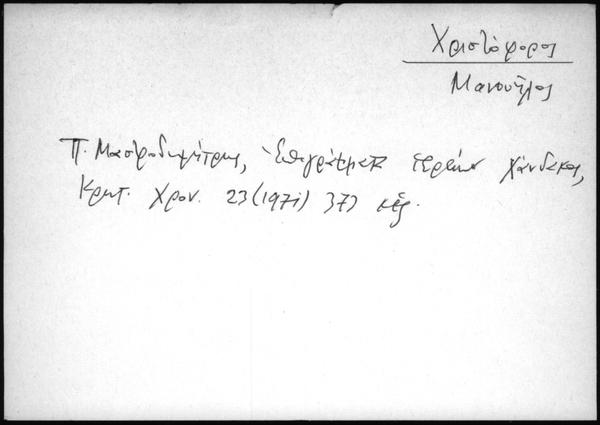 Χριστόφορος
Μανουῆλος
Π. Μαστροδημήτρης, Ἐπιγράμματα ἱερέων Χάνδακος,
Κρητ. Χρον. 23 (1971) 373 κἑξ.